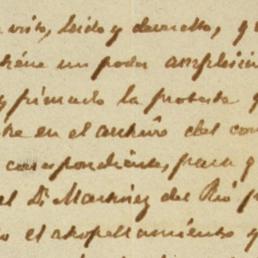 visto, leido y devuelto, q
tiene un poder amplisi
y firmado la protesta q
en el archivo del con
correspondiente, para q
el Dr Martinez del Rio p
el atropellamiento y